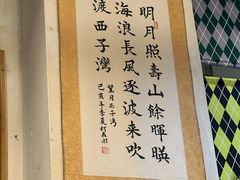 明月照壽山餘暉暎
海浪長風逐波來吹
渡西子灣
望月西子灣
己亥年季夏